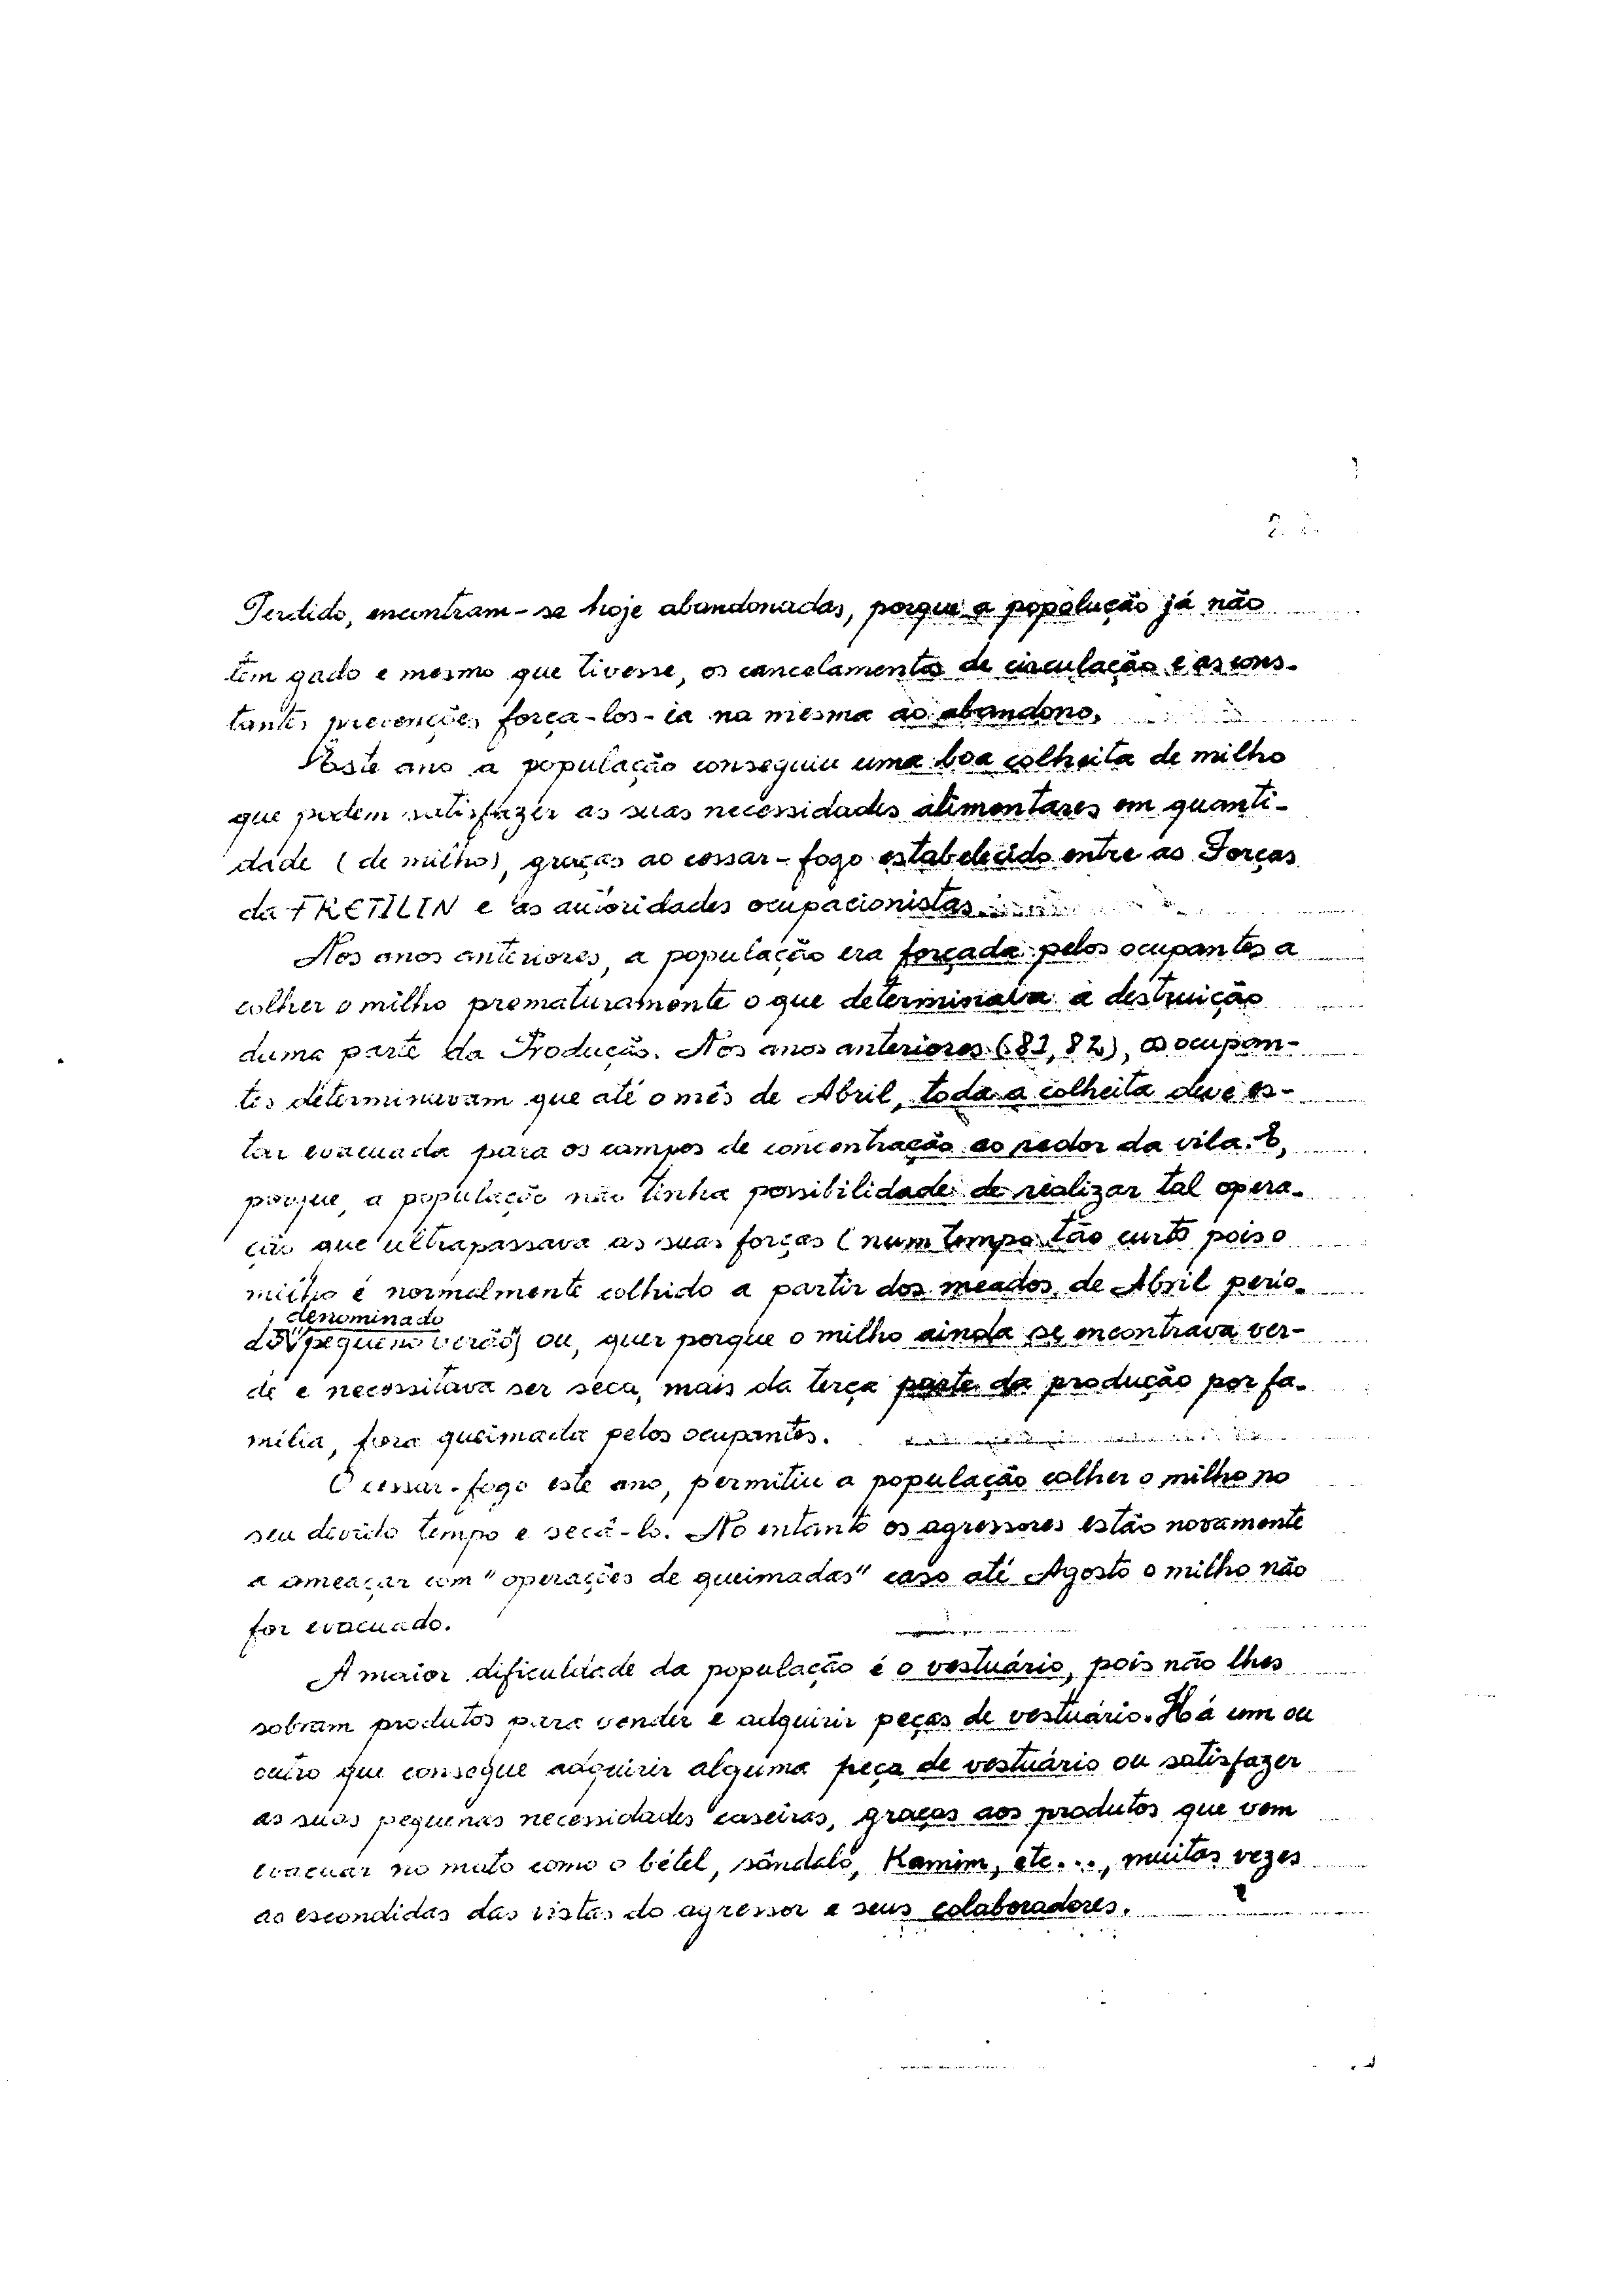 Perdido, encontram-se hoje abandonadas, porque a popolução já não
tem gado e mesmo que tivesse, os cancelamentos de circulação e as cons-
tantes prevenções força-los-ia na mesma ao abandono.
Neste ano a população conseguiu uma boa colheita de milho
que podem satisfazer as suas necessidades alimentares em quanti-
dade (de milho), graças ao cessar-fogo estabelecido entre as Forças
da FRETILIN e as autoridades ocupacionistas.
Nos anos anteriores, a população era forçada pelos ocupantes a
colher o milho prematuramente o que determinava a destruição
duma parte da Produção. Nos anos anteriores (81, 82), os ocupan-
tes determinavam que até o mês de Abril, toda a colheita deve es-
tar evacuada para os campos de concentração ao redor da vila. E,
porque, a população não tinha possibilidade de realizar tal opera-
ção que ultrapassava as suas forças (num tempo tão curto pois o
milho é normalmente colhido a partir dos meados de Abril perío-
denominado
do "pequeno verão") ou, quer porque o milho ainda se encontrava ver-
de e necessitava ser seca, mais da terça parte da produção por fa-
mília, fora queimada pelos ocupantes.
O cessar-fogo este ano, permitiu a população colher o milho no
seu devido tempo e secá-lo. No entanto os agressores estão novamente
a ameaçar com "operações de queimadas" caso até Agosto o milho não
for evacuado.
A maior dificuldade da população é o vestuário, pois não lhes
sobram produtos para vender e adquirir peças de vestuário. Há um ou
outro que consegue adquirir alguma peça de vestuário ou satisfazer
as suas pequenas necessidades caseiras, graças aos produtos que vem
evacuar no mato como o bétel, sândalo, Kamim, etc..., muitas vezes
as escondidas das vistas do agressor e seus colaboradores.